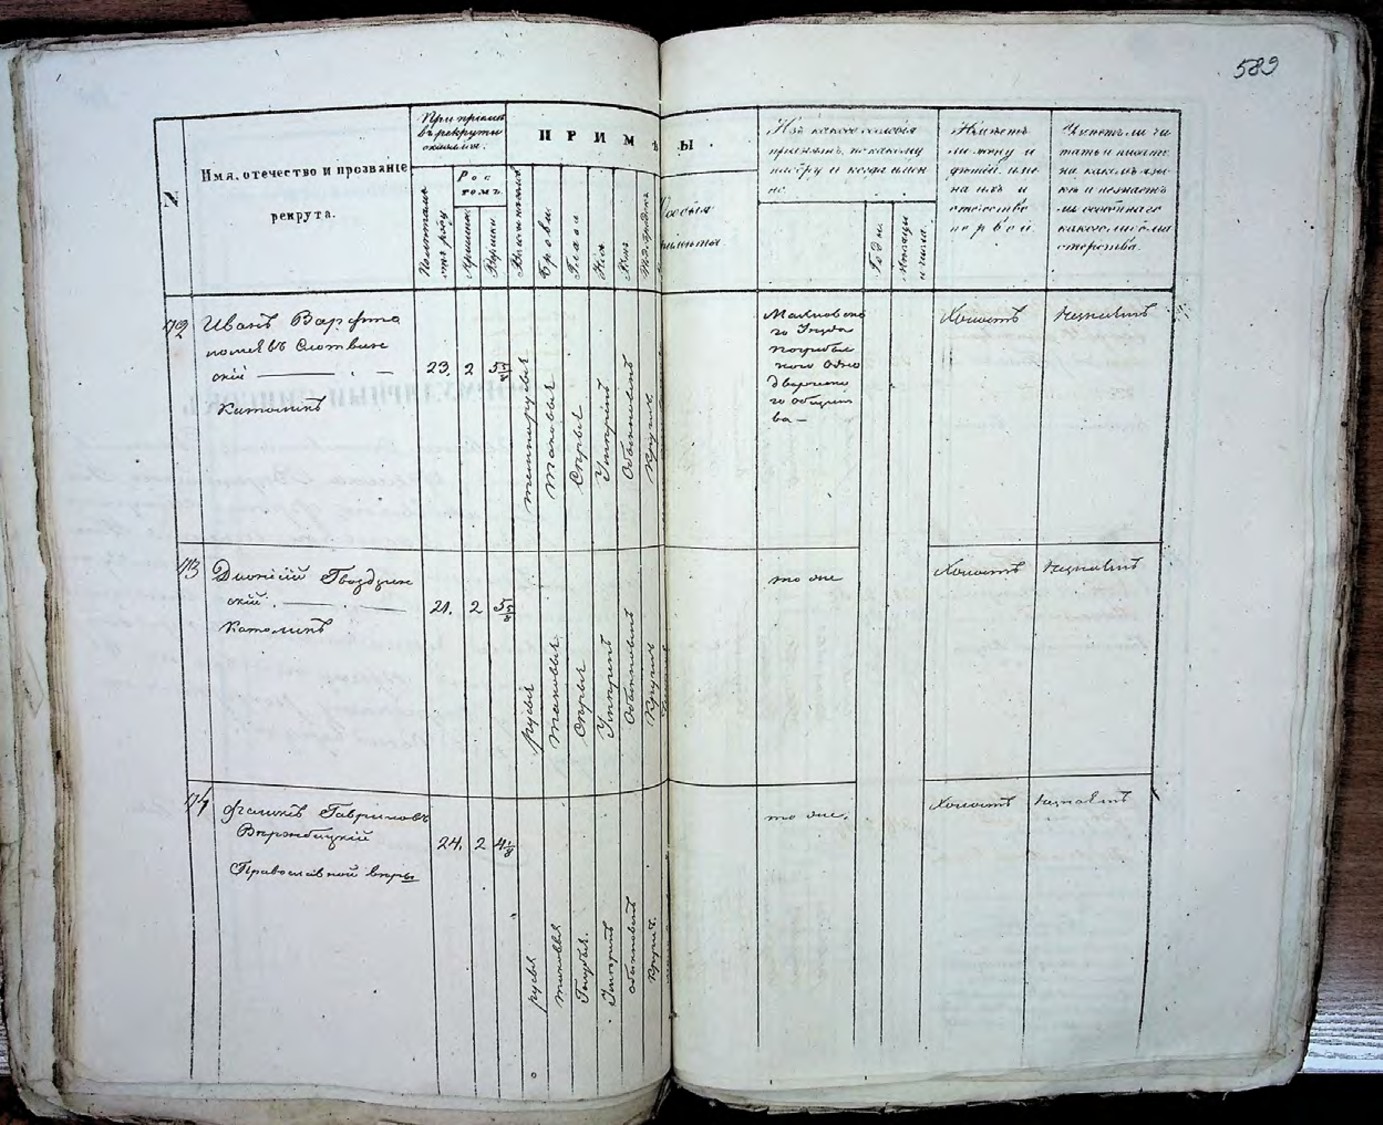 589
№
Имя, отечество и прозваніе
рекрута.
При приемѣ
въ рекруты
оказались:
Полнталѣ
отъ роду
Рос
томъ.
Аршинъ
Вершк.
ПРИМѢТЫ.
Волосы
Брови
Глаза
Носъ
Ротъ
Подбородокъ
Особыя
примѣты
Изъ какого сословія
принятъ, по какому
набору и когда имен
но.
Годы.
Мѣсяцы
и числа.
Имѣетъ
ли жену и
дѣтей, име
на ихъ и
отечество
первой
Умѣетъ ли чи
тать и писать
на какомъ язы
кѣ и не знаетъ
ли особеннаго
какого либо ма
стерства.
72
Иванъ Варфто
ломеевъ Слотвин
скій
Католикъ
23. 2 5 5/8
темнорусыя
таковыя
Сѣрыя
Умѣренъ
Обыкновенъ
Круглъ
Махновска
го Уѣзда
погребы
ного Одно
дворческа
го общест
ва
Холостъ
Незнаетъ
73
Діонисій Гвоздзин
скій.
Католикъ
21. 2 5 5/8
русыя
таковыя
Сѣрыя
Умѣренъ
Обыкновенъ
Круглъ
то же
Холостъ
Незнаетъ
74
Фаликъ Гавриловъ
Вержбицкій
Православной вѣры
24. 2 4 1/8
русыя
таковыя
Голубыя.
Умѣренъ
обыкновенъ
Круглъ.
то же.
Холостъ
Незнаетъ